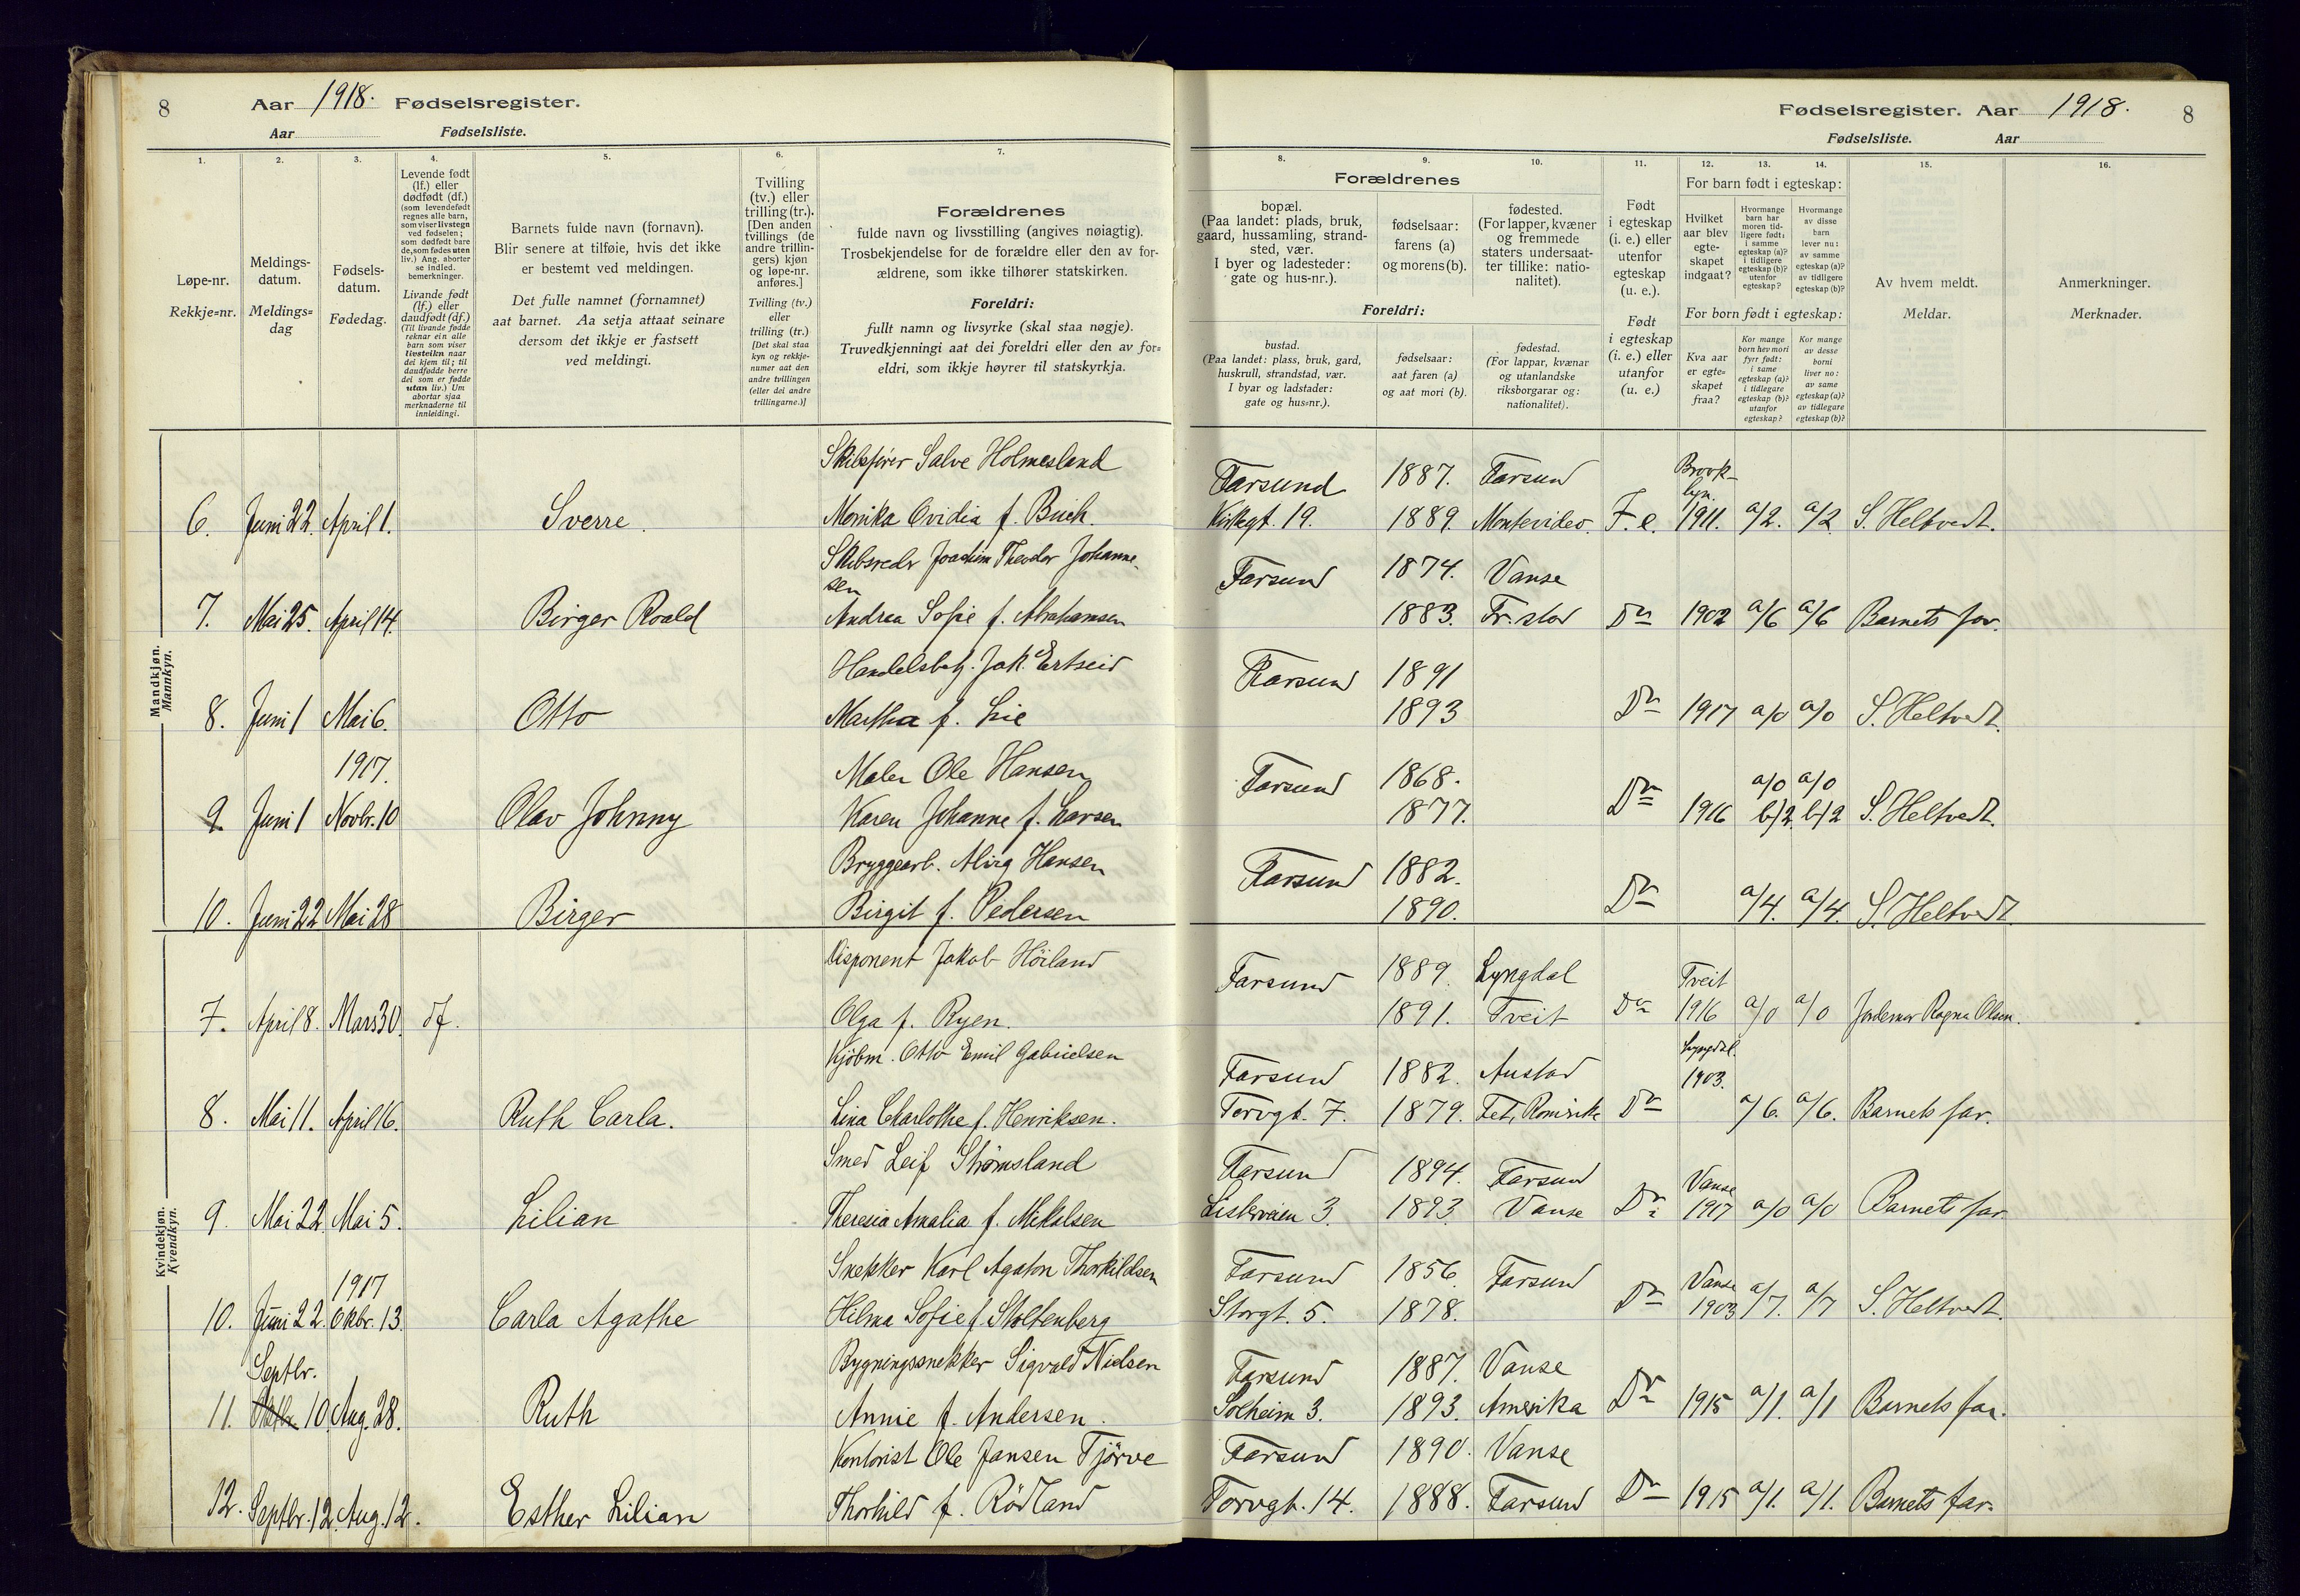 8 Aar 1918. Fødselsregister.
Aar Fødselsliste.
1. 2. 3. 4. 5. 6. 7.
Løpe-nr.
Rekkje=nr.
Meldings-
datum.
Meldings=
dag
Fødsels-
datum.
Fødedag.
Levende født
(lf.) eller
dødfødt (df.)
(som levendefødt
regnes alle barn,
som viser livstegn
ved fødselen;
som dødfødt bare
de, som fødes uten
liv.) Ang. aborter
se indled.
bemerkninger.
Livande født
(lf.) eller
daudfødt (df.)
(Til livande fødde
reknar ein alle
barn som viser
livsteikn naar
dei kjem til; til
daudfødde berre
dei som er fødde
utan liv.) Um
abortar sjaa
merknaderne til
innleidingi.
Barnets fulde navn (fornavn).
Blir senere at tilføie, hvis det ikke
er bestemt ved meldingen.
Det fulle namnet (fornamnet)
aat barnet. Aa setja attaat seinare
dersom det ikkje er fastsett
ved meldingi.
Tvilling
(tv.) eller
trilling (tr.).
[Den anden
tvillings (de
andre trillin-
gers) kjøn
og løpe-nr.
anføres.]
Tvilling (tv.)
eller
trilling (tr.)
[Det skal staa
kyn og rekkje-
numer aat den
andre tvillingen
(eller dei andre
trillingarne.)]
Forældrenes
fulde navn og livsstilling (angives nøiagtig).
Trosbekjendelse for de forældre eller den av for-
ældrene, som ikke tilhører statskirken.
Foreldri:
fullt namn og livsyrke (skal staa nøgje).
Truvedkjenningi aat dei foreldri eller den av for=
eldri, som ikkje høyrer til statskyrkja.
Mandkjøn.
Mannkyn.
Skibsfører Salve Holmesland
6. Juni 22. April 1. Sverre. Monika Ovidia f. Buch.
Skibsredr Joachim Theodor Johanne-
sen
7. Mai 25. April 14. Birger Roald Andrea Sofie f. Abrahamsen
Handelsbetj. Jak. Ertseid
8. Juni 1 Mai 6. Otto Martha f. Lie
1917. Maler Ole Hansen
9. Juni 1 Novbr. 10 Olav Johnny Karen Johanne f. Larsen
Bryggearb. Hansen
10. Juni 22 Mai 28 Birger Birgit f. Pedersen
Kvindekjøn.
Kvendkyn.
Disponent Jakob Höiland
7. April 8. Mars 30. df. Olga f. Ryen.
Kjöbm. Otto Emil Gabrielsen
8. Mai 11. April 16. Ruth Carla. Lina Charlothe f. Henriksen.
Smed Leif Strömsland
9. Mai 22. Mai 5. Lilian Theresia Amalia f. Mikalsen
1917 Snekker Karl Agaton Thorkildsen
10. Juni 22. Okbr. 13. Carla Agathe Hilma Sofie f. Stoltenberg
Septbr. Bygningssnekker Sigvald Nielsen
11. 10. Aug. 28. Ruth Annie f. Andersen.
Kontorist Ole Jansen Tjörve
12. Septbr. 12. Aug. 12. Esther Lilian Thorhild f. Rödland
Fødselsregister. Aar 1918. 8
Fødselsliste. Aar
8. 9. 10. 11. 12. 13. 14. 15. 16.
Forældrenes
bopæl.
(Paa landet: plads, bruk,
gaard, hussamling, strand-
sted, vær.
I byer og ladesteder:
gate og hus-nr.).
fødselsaar:
farens (a)
og morens (b).
fødested.
(For lapper, kvæner
og fremmede
staters undersaat-
ter tillike: natio-
nalitet).
Foreldri:
bustad.
(Paa landet: plass, bruk, gard,
huskrull, strandstad, vær.
I byar og ladstader:
gate og hus=nr.).
fødselsaar:
aat faren (a)
og aat mori (b).
fødestad.
(For lappar, kvænar
og utanlandske
riksborgarar og:
nationalitet).
Født
i egteskap
(i. e.) eller
utenfor
egteskap
(u. e.).
Født
i egteskap
(i. e.) eller
utanfor
(u. e.)
For barn født i egteskap:
Hvilket
aar blev
egte-
skapet
indgaat?
Hvormange
barn har
moren tid-
ligere født:
i samme
egteskap (a)?
i tidligere
egteskap (b)?
utenfor
egteskap?
Hvormange
av disse
barn
lever nu:
av samme
egteskap (a)?
av tidligere
egteskap (b)?
For born født i egteskap:
Kva aar
er egte=
skapet
fraa?
Kor mange
born hev mori
fyrr født:
i same
egteskap (a)?
i tidlegare
egteskap (b)?
utanfor
egteskap?
Kor mange
av desse
borni
liver no:
av same
egteskap (a)?
av tidlegare
egteskap (b)?
Av hvem meldt.
Meldar.
Anmerkninger.
Merknader.
Farsund 1887. Farsund Brook-
lyn.
Kirkegt. 19. 1889. Montevideo. F. e. 1911. a/2. a/2 S. Heltvedt.
Farsund 1874. Vanse
1883. Fr.stad Do 1902 a/6 a/6 Barnets far.
Farsund 1891
1893 Do 1917 a/0 a/0 S. Heltvedt.
Farsund 1868. a/0 a/0
1877. Do 1916 b/2. b/2 S. Heltvedt.
Farsund 1882.
1890. Do a/4. a/4. S. Heltvedt
Farsund 1889. Lyngdal Tveit
1891. Tveit Do 1916 a/0 a/0 Jordemor Ragna Olsen.
Lyngdal.
Farsund 1882. Austad 1903.
Torvgt. 7. 1879. Fet, Romerike Do a/6. a/6. Barnets far.
Farsund 1894. Farsund Vanse
Listerveien 3. 1893. Vanse Do 1917 a/0 a/0 Barnets far.
Farsund 1856. Farsund Vanse
Storgt. 5. 1878. Do 1903 a/7. a/7 S. Heltvedt.
Farsund 1887. Vanse
Solheim 3. 1893. Amerika Do 1915 a/1. a/1 Barnets far.
Farsund 1890. Vanse
Torvgt. 14. 1888. Farsund Do 1915 a/1. a/1. Barnets far.